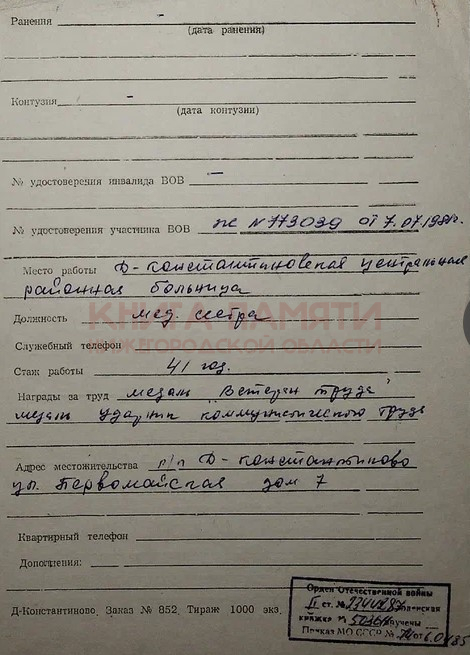 Ранения –
(дата ранения)
Контузия –
(дата контузии)
№ удостоверения инвалида ВОВ –
№ удостоверения участника ВОВ № 773039 от 7.07.198
Место работы Д-Константиновская центральная
районная больница
КНИГА ПАМЯТИ
Должность мед. сестра
НИЖЕГОРОДСКОЙ ОБЛАСТИ
Служебный телефон
Стаж работы 41 год.
Награды за труд медаль "Ветеран труда"
медаль ударник коммунистического труда
Адрес местожительства р/п Д-Константиново
ул. Первомайская дом 7
Квартирный телефон
Дополнения:
Орден Отечественной войны
II ст. №
Д-Константиново, Заказ № 852, Тираж 1000 экз.
книжка № вручены
Приказ МО СССР № от